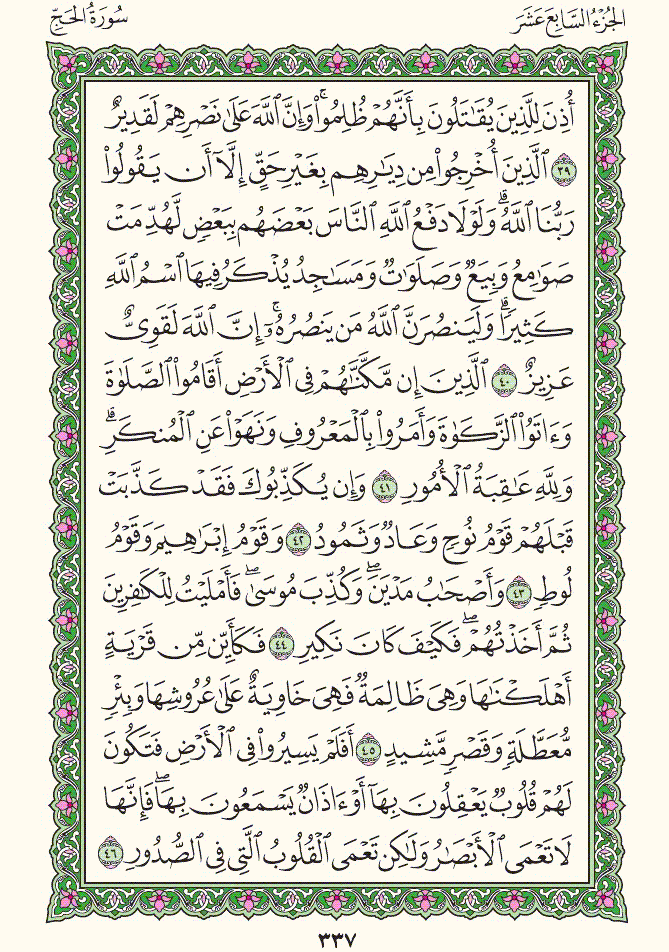 الجُزْءُ السَّابِعَ عَشَرَ
سُورَةُ الحَجِّ
أُذِنَ لِلَّذِينَ يُقَٰتَلُونَ بِأَنَّهُمْ ظُلِمُوا۟ ۚ وَإِنَّ ٱللَّهَ عَلَىٰ نَصْرِهِمْ لَقَدِيرٌ
٣٩ ٱلَّذِينَ أُخْرِجُوا۟ مِن دِيَٰرِهِم بِغَيْرِ حَقٍّ إِلَّآ أَن يَقُولُوا۟
رَبُّنَا ٱللَّهُ ۗ وَلَوْلَا دَفْعُ ٱللَّهِ ٱلنَّاسَ بَعْضَهُم بِبَعْضٍ لَّهُدِّمَتْ
صَوَٰمِعُ وَبِيَعٌ وَصَلَوَٰتٌ وَمَسَٰجِدُ يُذْكَرُ فِيهَا ٱسْمُ ٱللَّهِ
كَثِيرًا ۗ وَلَيَنصُرَنَّ ٱللَّهُ مَن يَنصُرُهُۥٓ ۗ إِنَّ ٱللَّهَ لَقَوِىٌّ
عَزِيزٌ ٤٠ ٱلَّذِينَ إِن مَّكَّنَّٰهُمْ فِى ٱلْأَرْضِ أَقَامُوا۟ ٱلصَّلَوٰةَ
وَءَاتَوُا۟ ٱلزَّكَوٰةَ وَأَمَرُوا۟ بِٱلْمَعْرُوفِ وَنَهَوْا۟ عَنِ ٱلْمُنكَرِ ۗ
وَلِلَّهِ عَٰقِبَةُ ٱلْأُمُورِ ٤١ وَإِن يُكَذِّبُوكَ فَقَدْ كَذَّبَتْ
قَبْلَهُمْ قَوْمُ نُوحٍ وَعَادٌ وَثَمُودُ ٤٢ وَقَوْمُ إِبْرَٰهِيمَ وَقَوْمُ
لُوطٍ ٤٣ وَأَصْحَٰبُ مَدْيَنَ ۖ وَكُذِّبَ مُوسَىٰ ۖ فَأَمْلَيْتُ لِلْكَٰفِرِينَ
ثُمَّ أَخَذْتُهُمْ ۖ فَكَيْفَ كَانَ نَكِيرِ ٤٤ فَكَأَيِّن مِّن قَرْيَةٍ
أَهْلَكْنَٰهَا وَهِىَ ظَالِمَةٌ فَهِىَ خَاوِيَةٌ عَلَىٰ عُرُوشِهَا وَبِئْرٍ
مُّعَطَّلَةٍ وَقَصْرٍ مَّشِيدٍ ٤٥ أَفَلَمْ يَسِيرُوا۟ فِى ٱلْأَرْضِ فَتَكُونَ
لَهُمْ قُلُوبٌ يَعْقِلُونَ بِهَآ أَوْ ءَاذَانٌ يَسْمَعُونَ بِهَا ۖ فَإِنَّهَا
لَا تَعْمَى ٱلْأَبْصَٰرُ وَلَٰكِن تَعْمَى ٱلْقُلُوبُ ٱلَّتِى فِى ٱلصُّدُورِ ٤٦
٣٣٧